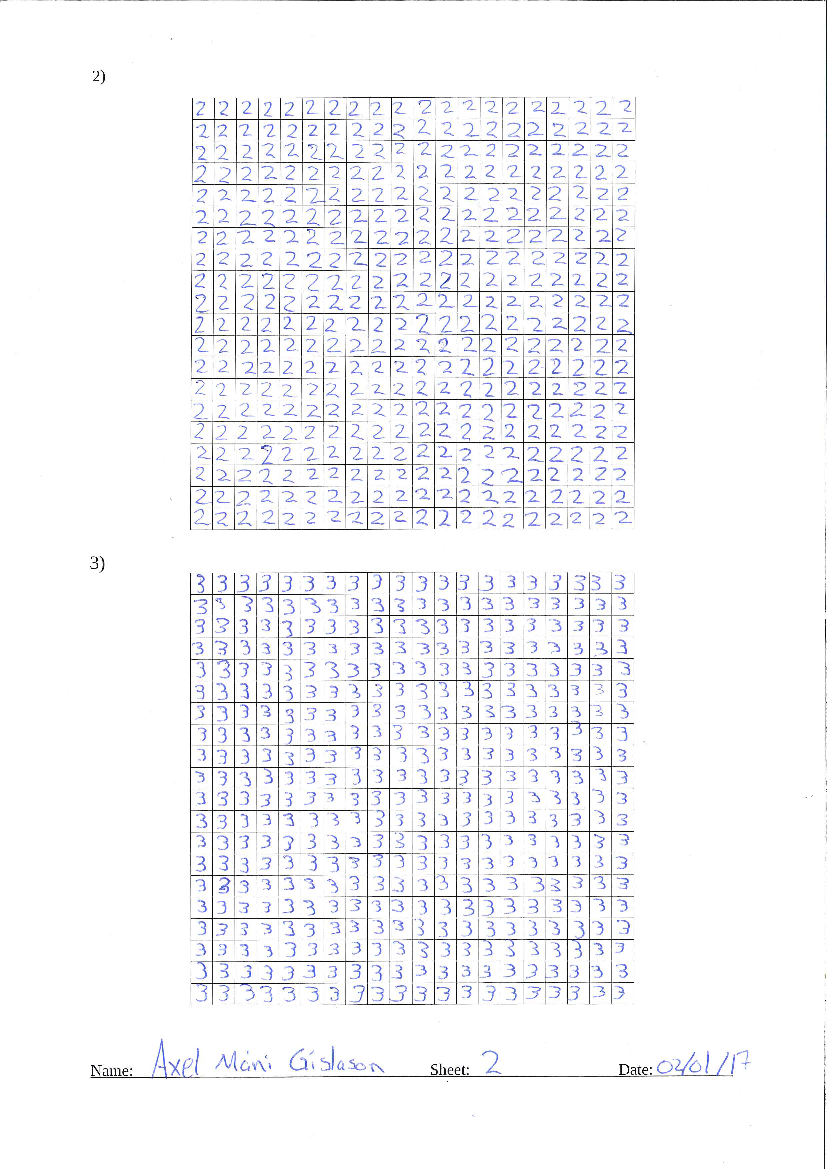 2)
2 2 2 2 2 2 2 2 2 2 2 2 2 2 2 2 2 2 2 2
2 2 2 2 2 2 2 2 2 2 2 2 2 2 2 2 2 2 2 2
2 2 2 2 2 2 2 2 2 2 2 2 2 2 2 2 2 2 2 2
2 2 2 2 2 2 2 2 2 2 2 2 2 2 2 2 2 2 2 2
2 2 2 2 2 2 2 2 2 2 2 2 2 2 2 2 2 2 2 2
2 2 2 2 2 2 2 2 2 2 2 2 2 2 2 2 2 2 2 2
2 2 2 2 2 2 2 2 2 2 2 2 2 2 2 2 2 2 2 2
2 2 2 2 2 2 2 2 2 2 2 2 2 2 2 2 2 2 2 2
2 2 2 2 2 2 2 2 2 2 2 2 2 2 2 2 2 2 2 2
2 2 2 2 2 2 2 2 2 2 2 2 2 2 2 2 2 2 2 2
2 2 2 2 2 2 2 2 2 2 2 2 2 2 2 2 2 2 2 2
2 2 2 2 2 2 2 2 2 2 2 2 2 2 2 2 2 2 2 2
2 2 2 2 2 2 2 2 2 2 2 2 2 2 2 2 2 2 2 2
2 2 2 2 2 2 2 2 2 2 2 2 2 2 2 2 2 2 2 2
2 2 2 2 2 2 2 2 2 2 2 2 2 2 2 2 2 2 2 2
2 2 2 2 2 2 2 2 2 2 2 2 2 2 2 2 2 2 2 2
2 2 2 2 2 2 2 2 2 2 2 2 2 2 2 2 2 2 2 2
2 2 2 2 2 2 2 2 2 2 2 2 2 2 2 2 2 2 2 2
2 2 2 2 2 2 2 2 2 2 2 2 2 2 2 2 2 2 2 2
2 2 2 2 2 2 2 2 2 2 2 2 2 2 2 2 2 2 2 2
3)
3 3 3 3 3 3 3 3 3 3 3 3 3 3 3 3 3 3 3 3
3 3 3 3 3 3 3 3 3 3 3 3 3 3 3 3 3 3 3 3
3 3 3 3 3 3 3 3 3 3 3 3 3 3 3 3 3 3 3 3
3 3 3 3 3 3 3 3 3 3 3 3 3 3 3 3 3 3 3 3
3 3 3 3 3 3 3 3 3 3 3 3 3 3 3 3 3 3 3 3
3 3 3 3 3 3 3 3 3 3 3 3 3 3 3 3 3 3 3 3
3 3 3 3 3 3 3 3 3 3 3 3 3 3 3 3 3 3 3 3
3 3 3 3 3 3 3 3 3 3 3 3 3 3 3 3 3 3 3 3
3 3 3 3 3 3 3 3 3 3 3 3 3 3 3 3 3 3 3 3
3 3 3 3 3 3 3 3 3 3 3 3 3 3 3 3 3 3 3 3
3 3 3 3 3 3 3 3 3 3 3 3 3 3 3 3 3 3 3 3
3 3 3 3 3 3 3 3 3 3 3 3 3 3 3 3 3 3 3 3
3 3 3 3 3 3 3 3 3 3 3 3 3 3 3 3 3 3 3 3
3 3 3 3 3 3 3 3 3 3 3 3 3 3 3 3 3 3 3 3
3 3 3 3 3 3 3 3 3 3 3 3 3 3 3 3 3 3 3 3
3 3 3 3 3 3 3 3 3 3 3 3 3 3 3 3 3 3 3 3
3 3 3 3 3 3 3 3 3 3 3 3 3 3 3 3 3 3 3 3
3 3 3 3 3 3 3 3 3 3 3 3 3 3 3 3 3 3 3 3
3 3 3 3 3 3 3 3 3 3 3 3 3 3 3 3 3 3 3 3
3 3 3 3 3 3 3 3 3 3 3 3 3 3 3 3 3 3 3 3
Name: Axel Máni Gíslason Sheet: 2 Date: 02/01/17